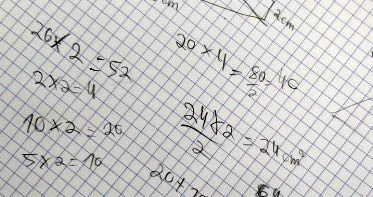 cm
2 cm
26 × 2 = 52
2 × 2 = 4
10 × 2 = 20
5 × 2 = 10
20 × 4 = 80/2 = 40
24 × 2 / 2 = 24 cm²
20 +